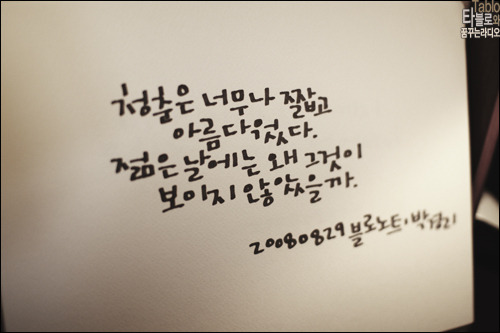 Tablo
타블로와
꿈꾸는라디오
청춘은 너무나 짧고
아름다웠다.
젊은 날에는 왜 그것이
보이지 않았을까.
20080829 블로노트, 박경리